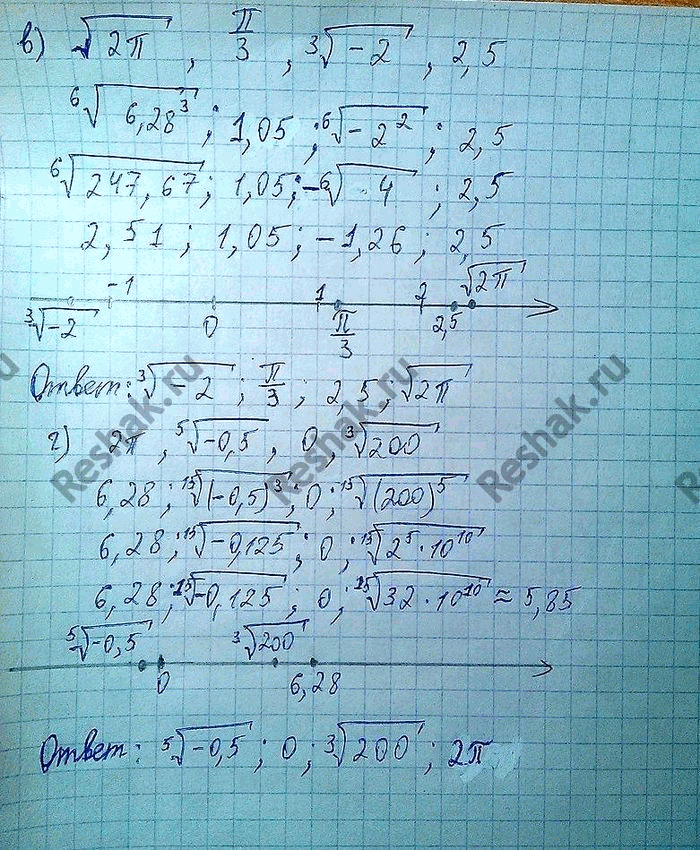 в) √2π , π/3 , ³√-2 , 2,5
⁶√6,28³ ; 1,05 ; ⁶√-2² ; 2,5
⁶√247,67 ; 1,05 ; -⁶√4 ; 2,5
2,51 ; 1,05 ; -1,26 ; 2,5
-1 1 2 √2π
³√-2 0 π/3 2,5
Ответ: ³√-2 ; π/3 ; 2,5 , √2π
г) 2π , ⁵√-0,5 , 0 , ³√200
6,28 ; ¹⁵√(-0,5)³ ; 0 ; ¹⁵√(200)⁵
6,28 ; ¹⁵√-0,125 ; 0 ; ¹⁵√2⁵·10¹⁰
6,28 ; ¹⁵√-0,125 ; 0 ; ¹⁵√32·10¹⁰ ≈ 5,85
⁵√-0,5 ³√200
0 6,28
Ответ: ⁵√-0,5 ; 0 ; ³√200 ; 2π
Reshak.ru
Reshak.ru
Reshak.ru
Reshak.ru
Reshak.ru
Reshak.ru